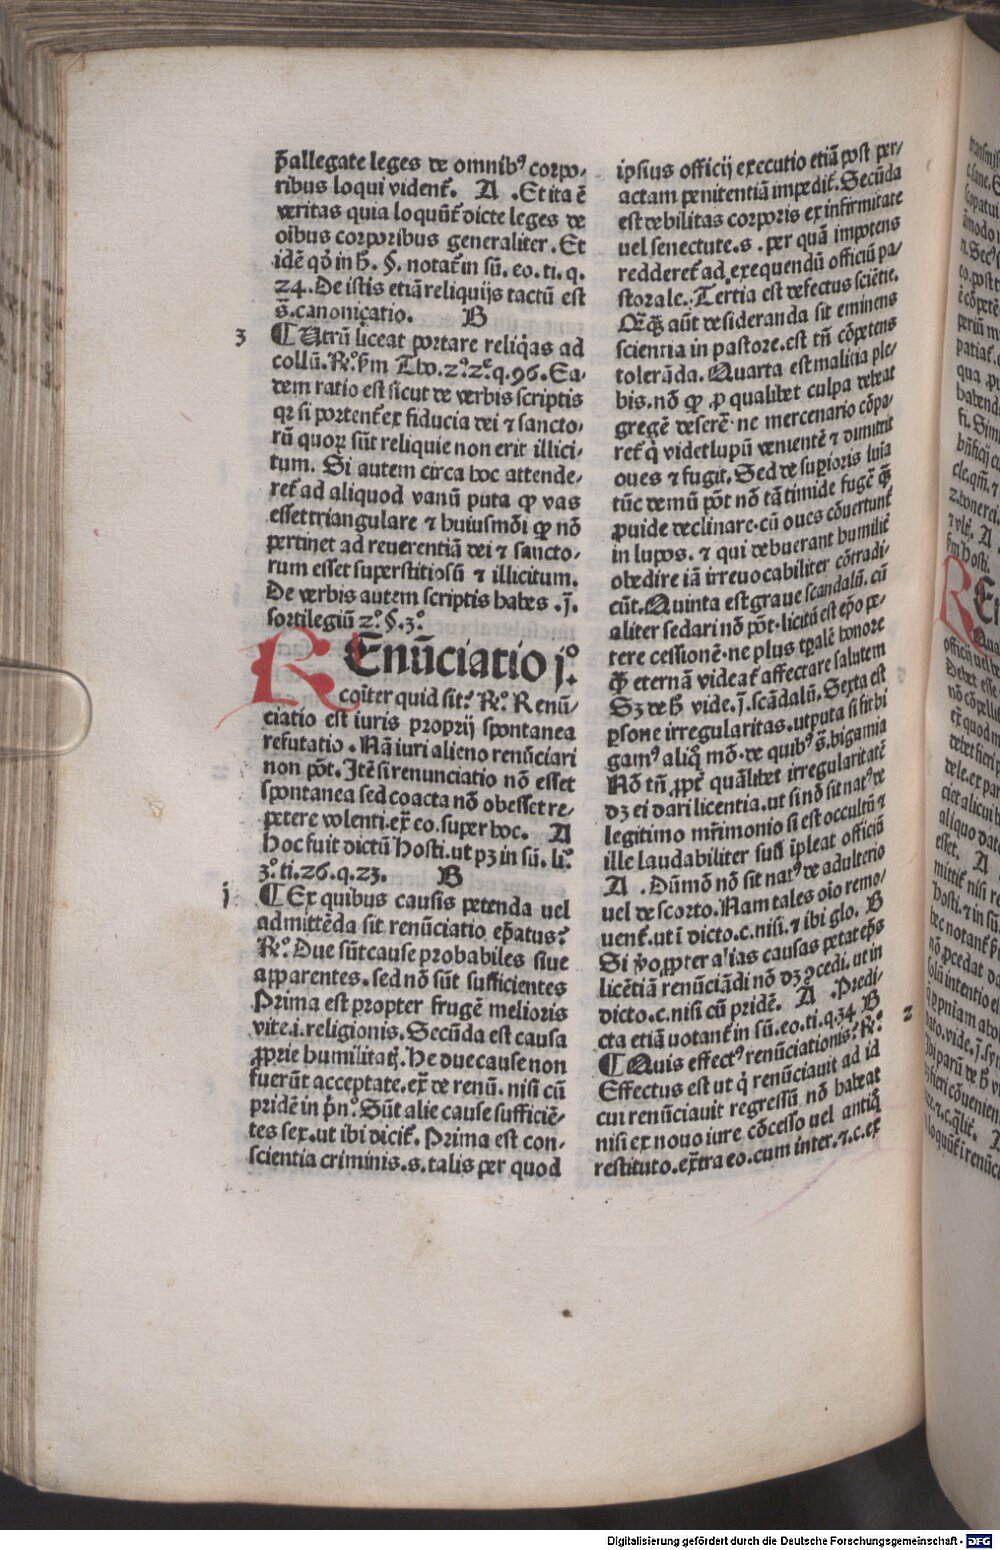 p̄allegate leges de omnibꝰ corpo⸗
ribus loqui vident᷑. A .Et ita ē
veritas quia loquūt᷑ dicte leges de
oibus corporibus generaliter. Et
idē qȯ in h̄. §. notat᷑ in sū. eo. ti. q.
24. De istis etiā reliquijs tactū est
s̄. canonicatio. B
3 ¶ Utrū liceat portare reliq̇as ad
collū. R̃ꝰ. ẜm Tho. 2ᵃ.2ᵉ.q.96. Ea⸗
dem ratio est sicut de verbis scriptis
qꝛ si portent᷑ ex fiducia dei ⁊ sancto⸗
rū quoꝝ sūt reliquie non erit illici⸗
tum. Si autem circa hoc attende⸗
ret᷑ ad aliquod vanū puta ꝙ vas
esset triangulare ⁊ huiusmōi ꝙ nō
pertinet ad reuerentiā dei ⁊ sancto⸗
rum esset superstitiosū ⁊ illicitum.
De verbis autem scriptis habes .j̄.
sortilegiū 2ᵒ. §. 3ᵒ.
REnūciatio jᵒ.
coīter quid sit? R̃ᵒ. Renū⸗
ciatio est iuris proprij spontanea
refutatio. Nā iuri alieno renūciari
non pōt. Itē si renunciatio nō esset
spontanea sed coacta nō obesset re⸗
petere volenti. ex̄ eo. super hoc. A
Hoc fuit dictū Hosti. ut pꝫ in sū. li.
3ᵒ. ti. 26. q. 23. B
j ¶ Ex quibus causis petenda uel
admittēda sit renūciatio ep̄atus?
R̃ᵒ. Due sūt cause probabiles siue
apparentes. sed nō sūt sufficientes
Prima est propter frugē melioris
vite. i. religionis. Secūda est causa
ꝓprie humilitatꝭ. He due cause non
fuerūt acceptate. ex̄ de renū. nisi cū
pridē in p̄nᵒ. Sūt alie cause sufficiē⸗
tes sex. ut ibi dicit᷑. Prima est con⸗
scientia criminis. s. talis per quod
ipsius officij executio etiā post per⸗
actam penitentiā impedit᷑. Secūda
est debilitas corporis ex infirmitate
uel senectute. s. per quā impotens
redderet᷑ ad exequendū officiū pa⸗
storale. Tertia est defectus sciētie.
Qꝛ q̄ꝫ aūt desideranda sit eminens
scientia in pastore. est tn̄ cōpetens
tolerāda. Quarta est malicia ple⸗
bis. nō ꝙ ꝓ qualibet culpa debeat
gregē deserē ne mercenario cōpa⸗
ret᷑ q̇ videt lupū venientē ⁊ dimittit
oues ⁊ fugit. Sed de superioris luia
tūc demū pōt nō tā timide fugē q̄ꝫ
ꝓuide declinare. cū oues cōuertunt᷑
in lupos. ⁊ qui debuerant humilit᷑
obedire iā irreuocabiliter cōtradi⸗
cūt. Quinta est graue scandalū. cū
aliter sedari nō pōt. licitū est ep̄o pe⸗
tere cessionē. ne plus tꝑalē honorē
q̄ꝫ eternā videat᷑ affectare salutem
Sꝫ de h̄ vide. j̄. scādalū. Sexta est
ꝑsone irregularitas. utputa si sit bi
gamꝰ aliq̇ mō. de quibꝰ s̄. bigamia
Nō tn̄ ꝓpt᷑ quālibet irregularitatē
dꝫ ei dari licentia. ut si nō sit natꝰ de
legitimo mr̄imonio si est occultū ⁊
ille laudabiliter suū ipleat officiū
A .Dūmō nō sit natꝰ de adulterio
uel de scorto. Nam tales oīo remo⸗
uent᷑. ut ī dicto. c. nisi. ⁊ ibi glo. B
Si ṽo ꝓpter alias causas petat ep̄s
licētiā renūciādi nō dꝫ ꝯcedi. ut in
dicto. c. nisi cū pridē. A .Predi⸗
cta etiā notant᷑ in sū. eo. ti. q. 34. B
2 ¶ Quis effectꝰ renūciationis? R̃ᵒ.
Effectus est ut q̇ renūciauit ad id
cui renūciauit regressū nō habeat
nisi ex nouo iure cōcesso uel antiq̇
restituto. ex̄tra eo. cum inter. ⁊. c. ex
Digitalisierung gefördert durch die Deutsche Forschungsgemeinschaft - DFG